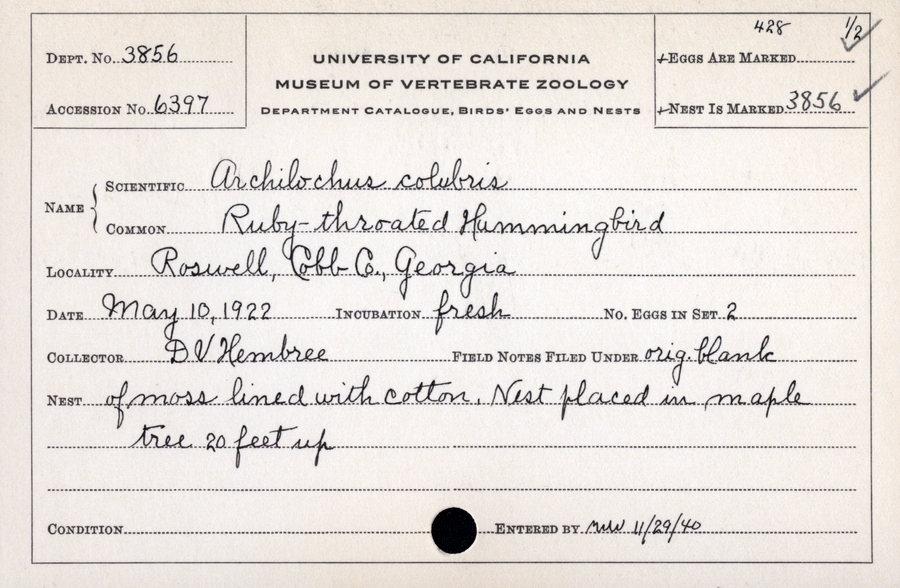 428 1/2
Dept. No. 3856
UNIVERSITY OF CALIFORNIA
Eggs Are Marked
MUSEUM OF VERTEBRATE ZOOLOGY
Accession No. 6397
Department Catalogue, Birds' Eggs and Nests
Nest Is Marked 3856
Name
Scientific Archilochus colubris
Common Ruby-throated Hummingbird
Locality Roswell, Cobb Co., Georgia
Date May 10, 1922 Incubation fresh No. Eggs in Set 2
Collector D V Hembree Field Notes Filed Under orig. blank
Nest of moss lined with cotton. Nest placed in maple
tree 20 feet up
Condition Entered by 11/29/40